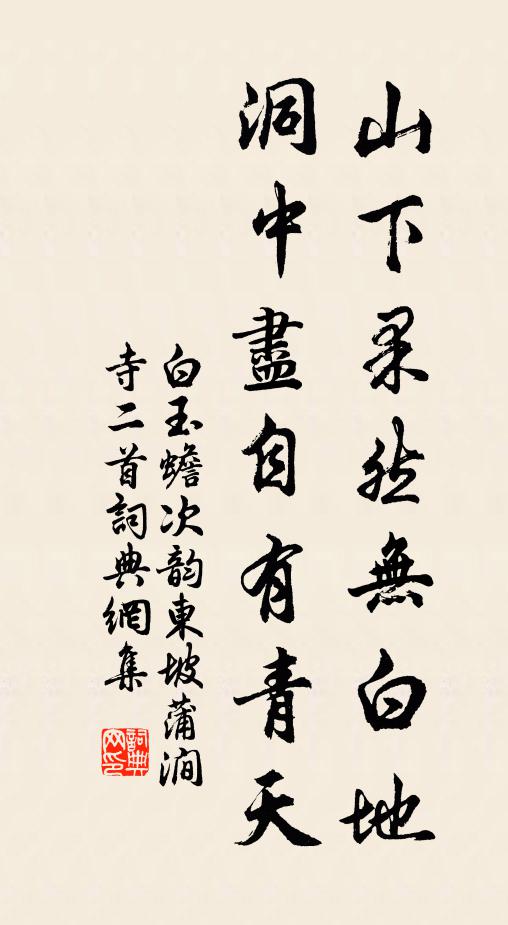 山下果然無白地
洞中盡自有青天
白玉蟾次韵東坡蒲澗
寺二首詞典網集
詞典網印